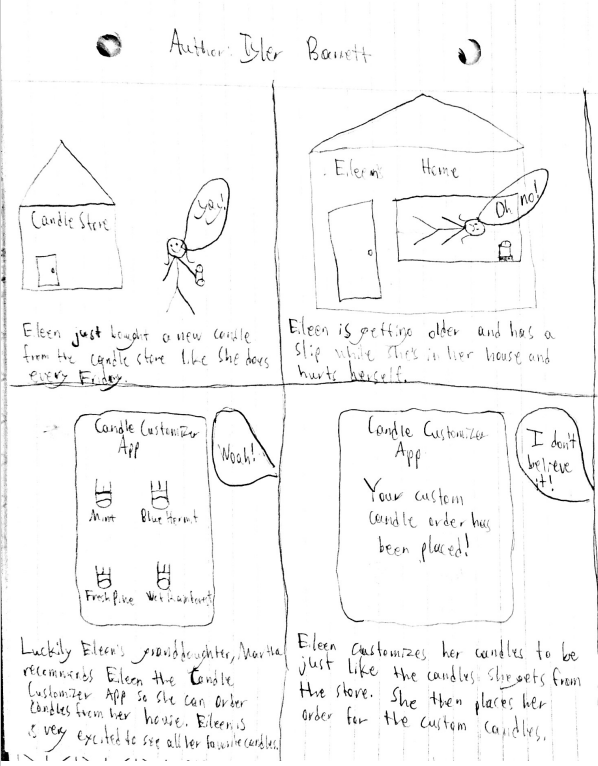 Author: Tyler Barrett
Candle Store
yay!
Eileen just bought a new candle
from the candle store like she does
every Friday.
Eileen's Home
Oh no!
Eileen is getting older and has a
slip while she's in her house and
hurts herself.
Candle Customizer
App
Mint
Fresh Pine
Woah!
Luckily Eileen's granddaughter, Martha
recommends Eileen the Candle
Customizer App so she can order
candles from her house. Eileen is
is very excited to see all her favorite candles.
Candle Customizer
App
Your custom
candle order has
been placed!
I don't
believe
it!
Eileen customizes her candles to be
just like the candles she gets from
the store. She then places her
order for the custom candles.